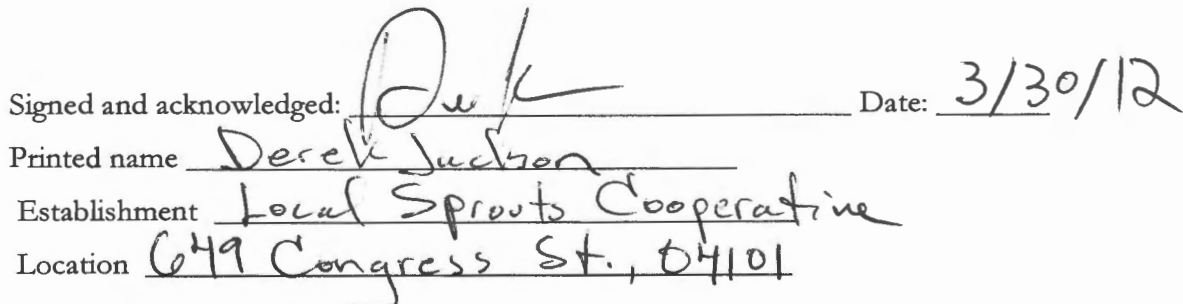 Signed and acknowledged: Date: 3/30/12
Printed name Derek
Establishment Local Sprouts Cooperative
Location 649 Congress St., 04101